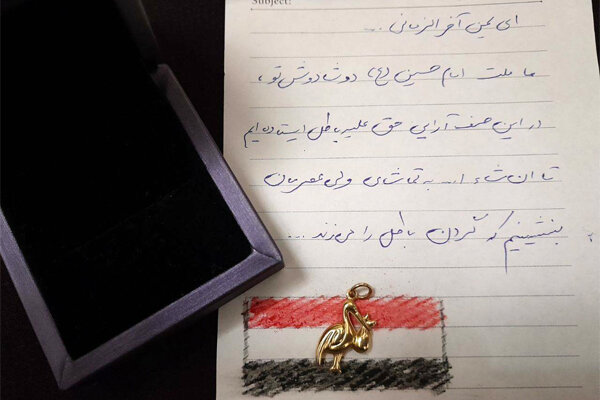 Subject:
ای یمن آخرالزمانی ...
ما ملت امام حسین (ع) دوشادوش تو،
در این صف آرایی حق علیه باطل ایستاده ایم
تا ان شاء ا... به تماشای ولی عصرمان
بنشینیم که گردن باطل را می زند ...